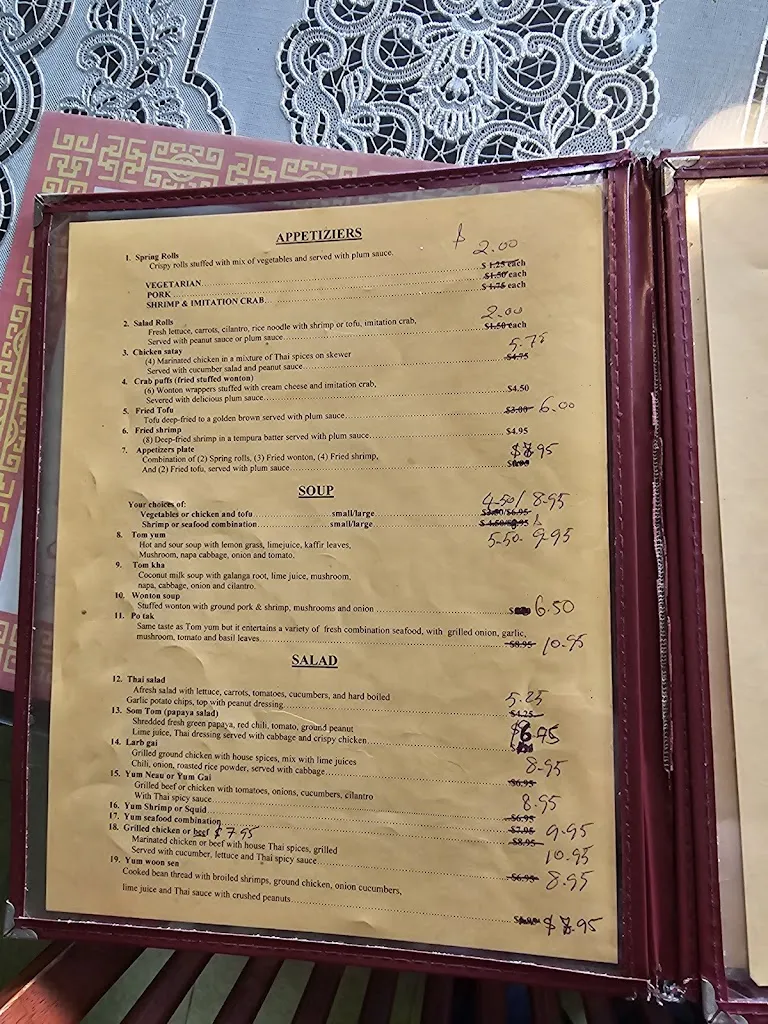 APPETIZIERS
1. Spring Rolls $ 2.00
Crispy rolls stuffed with mix of vegetables and served with plum sauce.
VEGETARIAN........ $ 1.25 each
PORK........ $1.50 each
SHRIMP & IMITATION CRAB........ $ 1.75 each
2. Salad Rolls 2.00
Fresh lettuce, carrots, cilantro, rice noodle with shrimp or tofu, imitation crab,
Served with peanut sauce or plum sauce........ $1.50 each
3. Chicken satay 5.75
(4) Marinated chicken in a mixture of Thai spices on skewer
Served with cucumber salad and peanut sauce........ $4.75
4. Crab puffs (fried stuffed wonton)
(6) Wonton wrappers stuffed with cream cheese and imitation crab,
Severed with delicious plum sauce........ $4.50
5. Fried Tofu
Tofu deep-fried to a golden brown served with plum sauce........ $3.00 6.00
6. Fried shrimp
(8) Deep-fried shrimp in a tempura batter served with plum sauce........ $4.95
7. Appetizers plate
Combination of (2) Spring rolls, (3) Fried wonton, (4) Fried shrimp,
And (2) Fried tofu, served with plum sauce........
SOUP
Your choices of: 4.50/ 8.95
Vegetables or chicken and tofu........small/large........ $3.50/$6.95
Shrimp or seafood combination........small/large........
8. Tom yum 5.50 9.95
Hot and sour soup with lemon grass, limejuice, kaffir leaves,
Mushroom, napa cabbage, onion and tomato.
9. Tom kha
Coconut milk soup with galanga root, lime juice, mushroom,
napa, cabbage, onion and cilantro.
10. Wonton soup
Stuffed wonton with ground pork & shrimp, mushrooms and onion........ $ 6.50
11. Po tak
Same taste as Tom yum but it entertains a variety of fresh combination seafood, with grilled onion, garlic,
mushroom, tomato and basil leaves........ $8.95 10.95
SALAD
12. Thai salad
Afresh salad with lettuce, carrots, tomatoes, cucumbers, and hard boiled
Garlic potato chips, top with peanut dressing........ 5.25
13. Som Tom (papaya salad) $4.25
Shredded fresh green papaya, red chili, tomato, ground peanut
Lime juice, Thai dressing served with cabbage and crispy chicken........ $6.95
14. Larb gai
Grilled ground chicken with house spices, mix with lime juices
Chili, onion, roasted rice powder, served with cabbage........ 8.95
15. Yum Neau or Yum Gai $6.95
Grilled beef or chicken with tomatoes, onions, cucumbers, cilantro
With Thai spicy sauce........ 8.95
16. Yum Shrimp or Squid........ $6.95
17. Yum seafood combination........ $7.95 9.95
18. Grilled chicken or beef $7.95 $8.95
Marinated chicken or beef with house Thai spices, grilled 10.95
Served with cucumber, lettuce and Thai spicy sauce........
19. Yum woon sen $6.95 8.95
Cooked bean thread with broiled shrimps, ground chicken, onion cucumbers,
lime juice and Thai sauce with crushed peanuts........